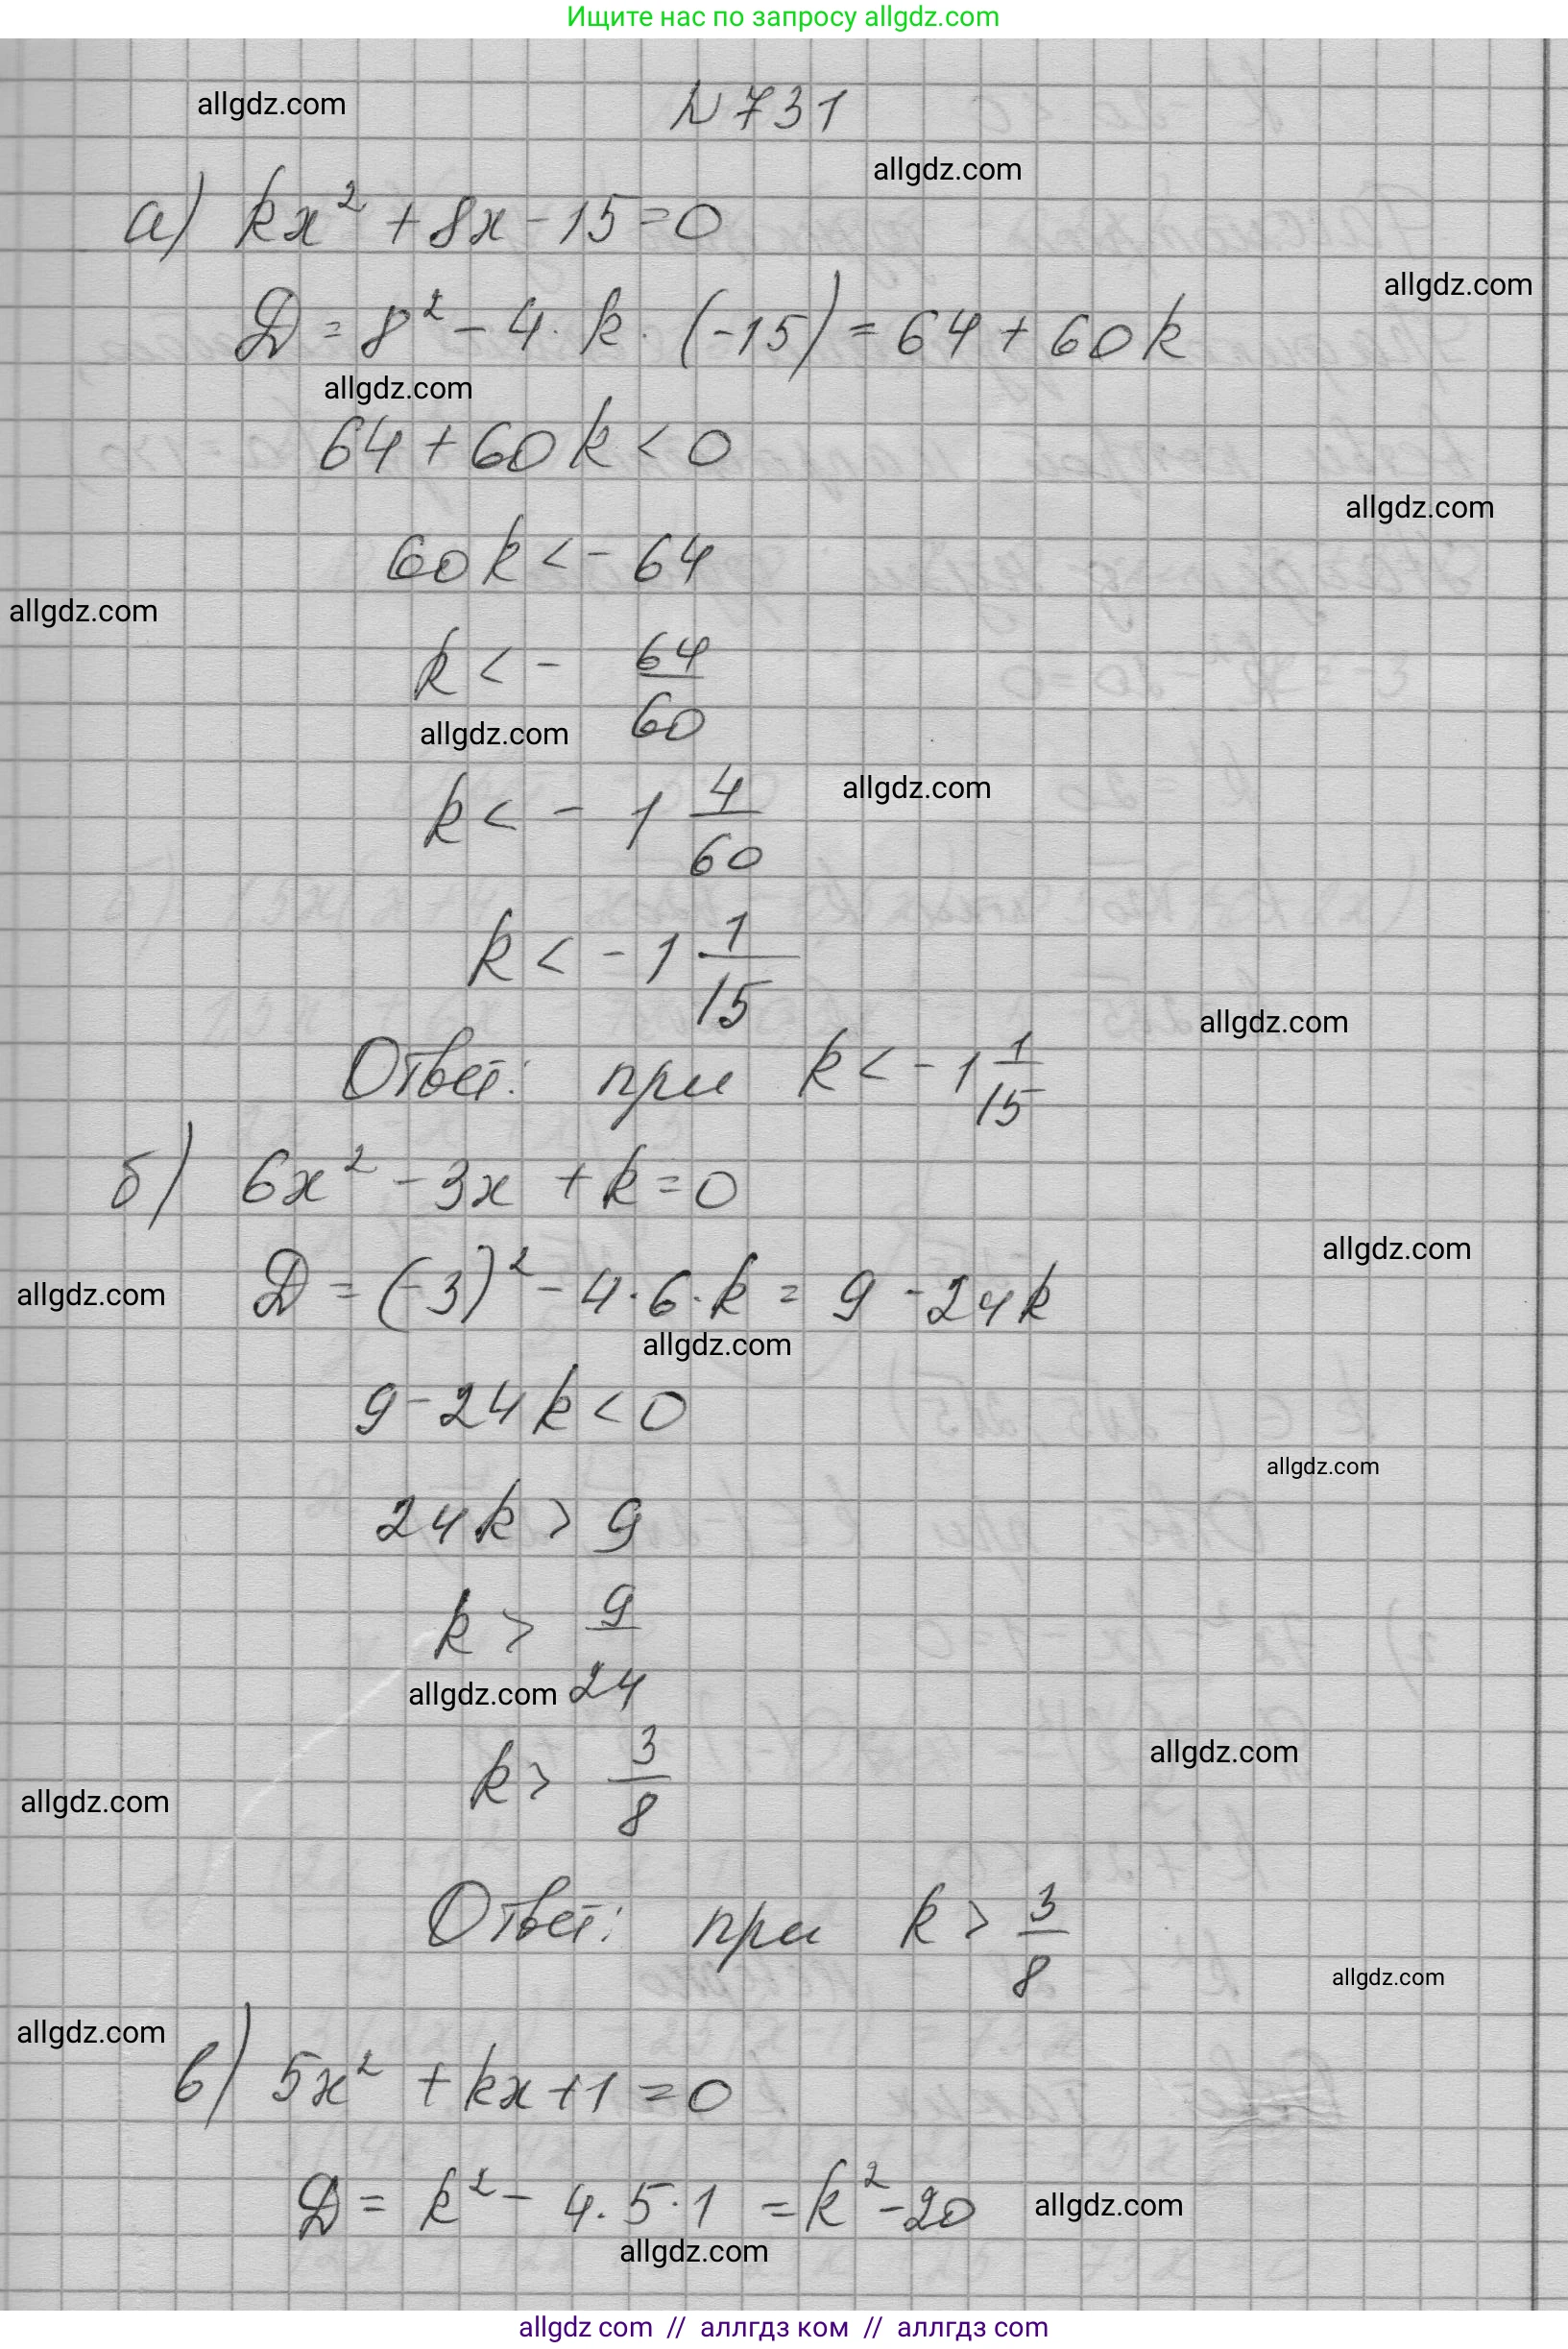 Ищите нас по запросу allgdz.com
allgdz.com
№731
allgdz.com
а) kx² + 8x - 15 = 0
allgdz.com
D = 8² - 4 · k · (-15) = 64 + 60k
allgdz.com
64 + 60k < 0
allgdz.com
60k < - 64
allgdz.com
k < - 64/60
allgdz.com
allgdz.com
k < - 1 4/60
k < - 1 1/15
allgdz.com
Ответ: при k < - 1 1/15
б) 6x² - 3x + k = 0
allgdz.com
D = (-3)² - 4 · 6 · k = 9 - 24k
allgdz.com
allgdz.com
9 - 24k < 0
allgdz.com
24k > 9
k > 9/24
allgdz.com
allgdz.com
k > 3/8
allgdz.com
Ответ: при k > 3/8
allgdz.com
allgdz.com
в) 5x² + kx + 1 = 0
D = k² - 4 · 5 · 1 = k² - 20
allgdz.com
allgdz.com
allgdz com // аллгдз ком // аллгдз com